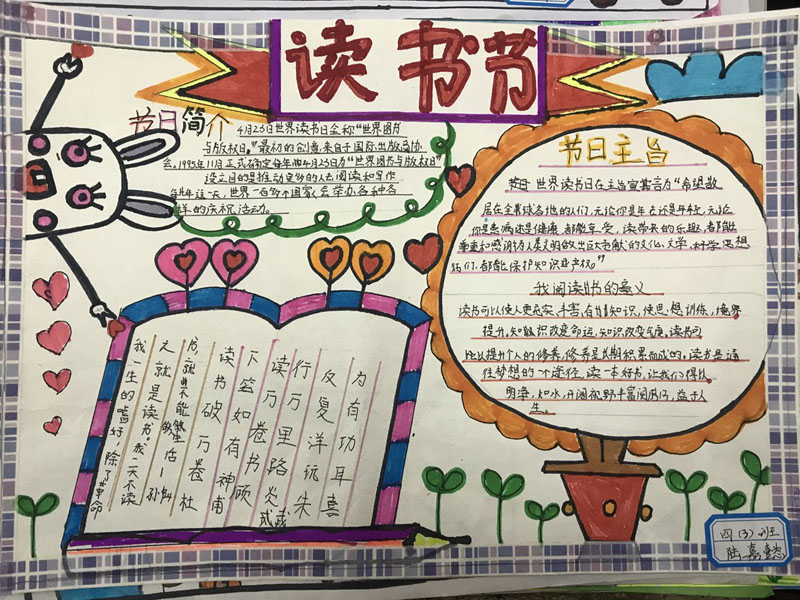 读书节
节日简介
4月23日世界读书日全称“世界图书
与版权日。”最初的创意来自于国际出版商协
会。1995年11月正式确定每年的4月23日为“世界图书与版权日”
设立目的是推动更多的人去阅读和写作
每年这一天，世界一百多个国家会举办各种各
样的庆祝活动。
节日主旨
世界读书日在主旨宣言为“希望散
居在全球各地的人们，无论你是年老还是年轻，无论
你是患病还是健康，都能享受，读带来的乐趣，都能
尊重和感谢为人类文明做出巨大贡献的文化、文学、科学思想
们，都能保护知识产权。”
我阅读的书的意义
读书可以使人更充实，丰富，有知识，使思想训练，境界
提升，知识改变命运，知识改变气质。读书可
以提升个人的修养，修养是长期积累而成的。读书是通
往梦想的一个途径，读一本好书，让我们得以
明净，如水，开阔视野丰富阅历，益于人
生。
为有功耳熹
反复洋玩朱
行万里路炎武
读万卷书顾
下笔如有神甫
读书破万卷杜
后，就不能生活——
天就是读书。我一天不读 孙
我一生的嗜好，除了革命
四（3）班
陆嘉懿